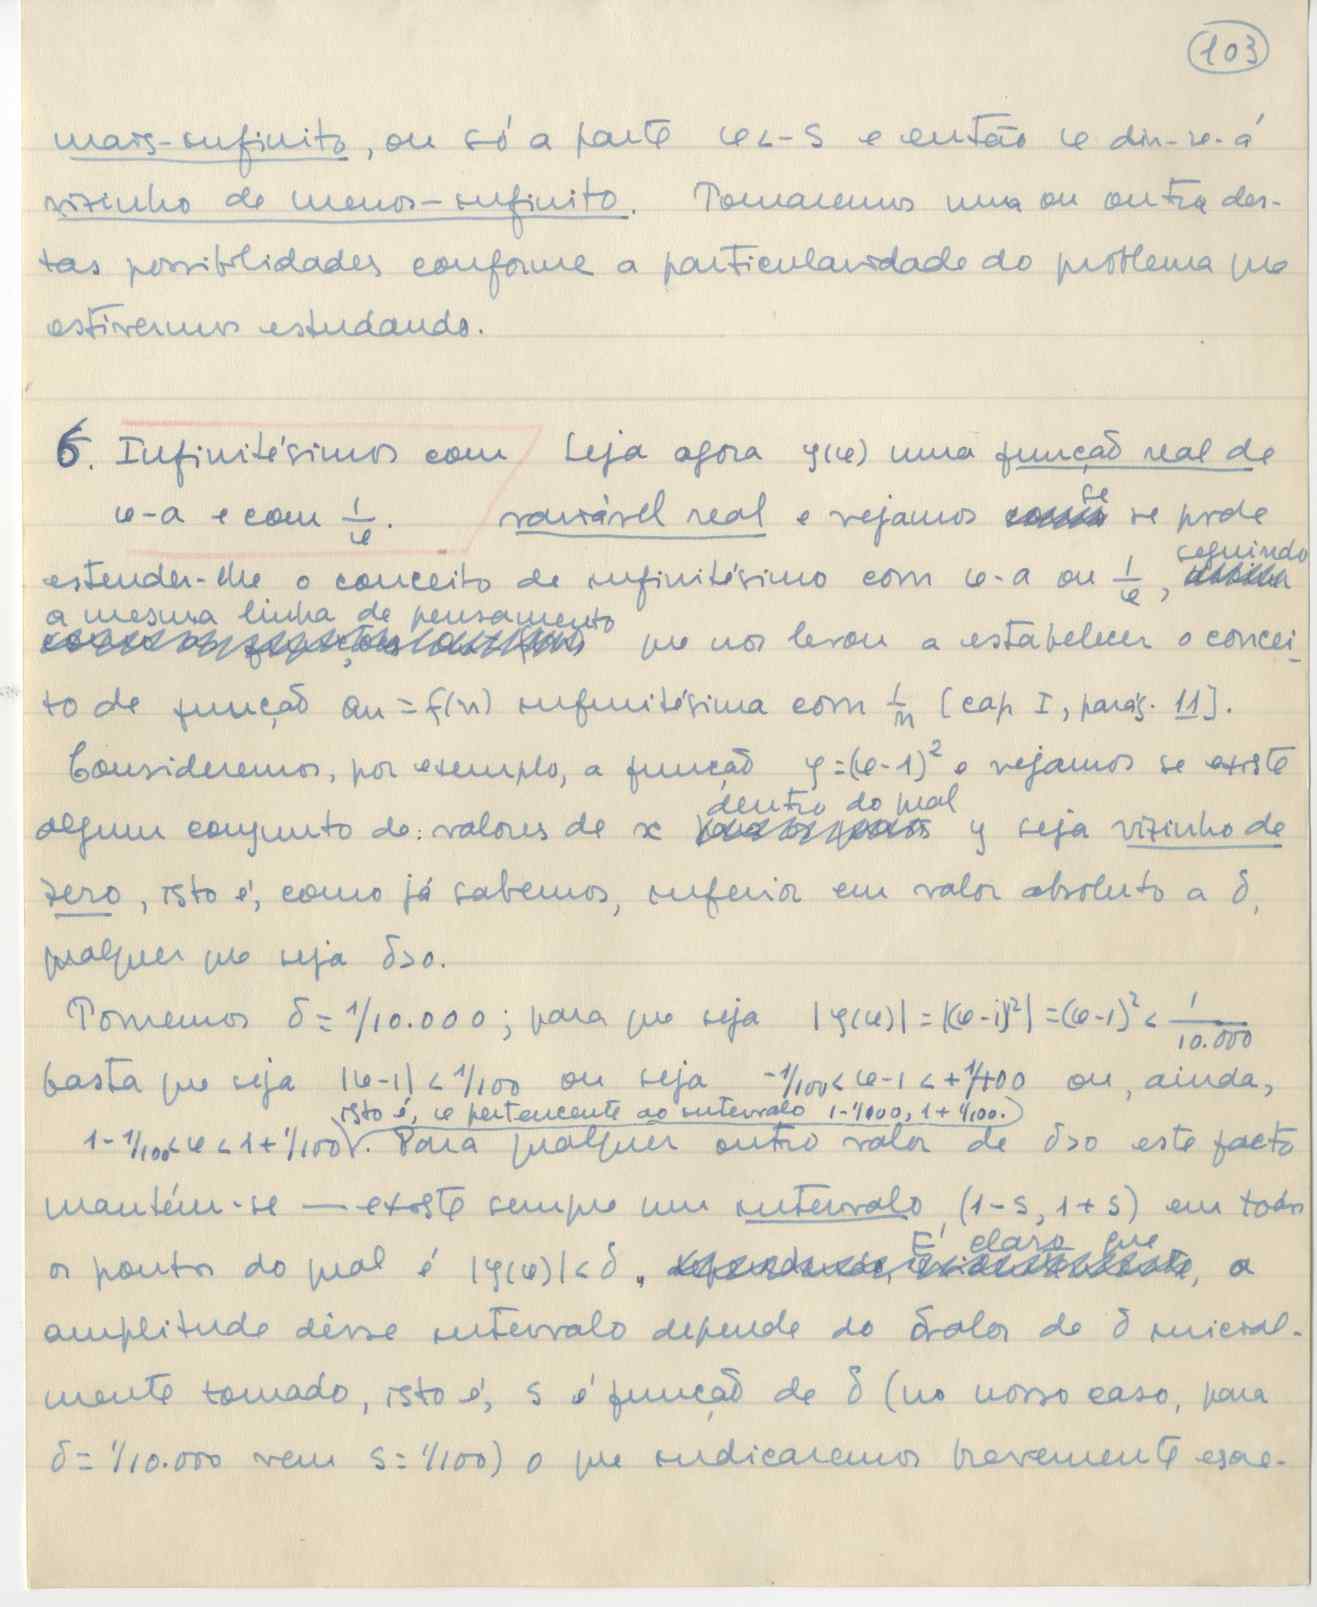 103
mais-infinito, ou só a parte x<-s e então x dir-se-á
vizinho de menos-infinito. Tomaremos uma ou outra des-
tas possibilidades conforme a particularidade do problema que
estivermos estudando.
6. Infinitésimos com Seja agora y(x) uma função real de
x-a e com 1/x. variável real e vejamos se se pode
estender-lhe o conceito de infinitésimo com x-a ou 1/x, seguindo
a mesma linha de pensamento que nos levou a estabelecer o concei-
to de função an = f(n) infinitésima com 1/n [cap I, parág. 11].
Consideremos, por exemplo, a função y=(x-1)² e vejamos se existe
algum conjunto de valores de x dentro do qual y seja vizinho de
zero, isto é, como já sabemos, inferior em valor absoluto a δ,
qualquer que seja δ>0.
Tomemos δ = 1/10.000; para que seja |y(x)| = |(x-1)²| = (x-1)² < 1/10.000
basta que seja |x-1| < 1/100 ou seja -1/100 < x-1 < +1/100 ou, ainda,
isto é, x pertencente ao intervalo 1-1/100, 1+1/100.
1-1/100 < x < 1+1/100. Para qualquer outro valor de δ>0 este facto
mantém-se — existe sempre um intervalo (1-s, 1+s) em todos
os pontos do qual é |y(x)|<δ. É claro que a
amplitude dêsse intervalo depende do valor de δ inicial-
mente tomado, isto é, s é função de δ (no nosso caso, para
δ = 1/10.000 vem s = 1/100) o que indicaremos brevemente escre-